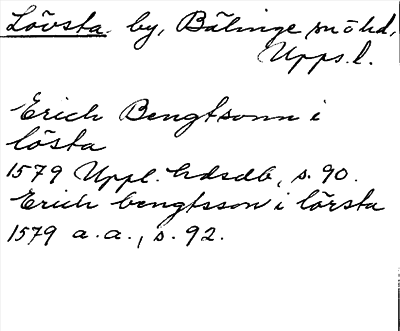 Lövsta by, Bälinge sn o hd,
Upps. l.
Erich Bengtsonn i
lösta
1579 Uppl. hdsdb, s. 90.
Erich bengtsson i lörsta
1579 a. a., s. 92.